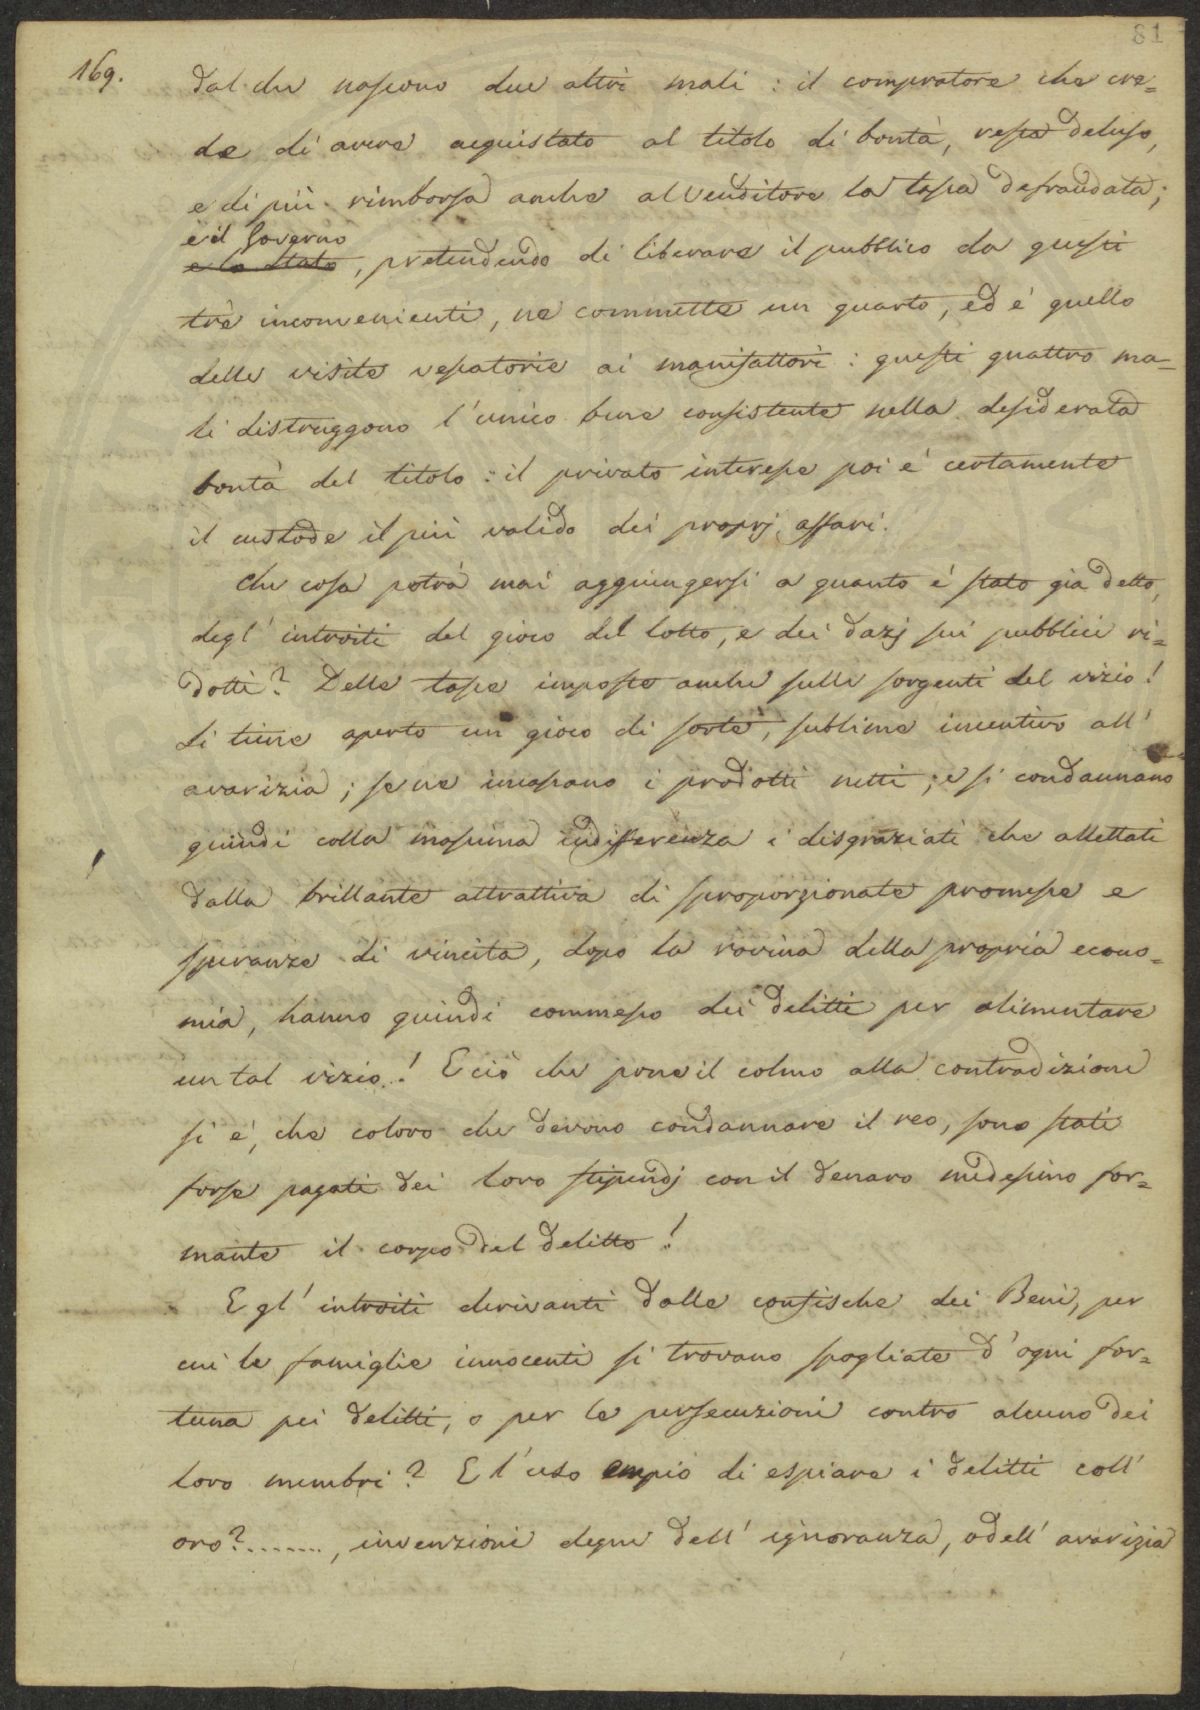 81
169.
dal che nascono due altri mali : il compratore che cre=
de di avere acquistato al titolo di bontà, resta deluso,
e di più rimborsa anche al Venditore la tassa defraudata;
e il Governo
e lo Stato, pretendendo di liberare il pubblico da questi
trè inconvenienti, ne commette un quarto, ed è quello
delle visite vessatorie ai manifattori : questi quattro ma=
li distruggono l'unico bene consistente nella desiderata
bontà del titolo : il privato interesse poi è certamente
il custode il più valido dei proprj affari.
Che cosa potrà mai aggiungersi a quanto è stato già detto,
degl' introiti del gioco del lotto, e dei dazj sui pubblici ri=
dotti? Delle tasse imposte anche sulle sorgenti del vizio!
Si tiene aperto un gioco di sorte, sublime incentivo all'
avarizia; se ne incassano i prodotti netti; e si condannano
quindi colla massima indifferenza i disgraziati che allettati
dalla brillante attrattiva di sproporzionate promesse e
speranze di vincita, dopo la rovina della propria econo=
mia, hanno quindi commesso dei delitti per alimentare
un tal vizio! E ciò che pone il colmo alla contradizione
si è, che coloro che devono condannare il reo, sono stati
forse pagati dei loro stipendj con il denaro medesimo for=
mante il corpo del delitto!
E gl' introiti derivanti dalle confische dei Beni, per
cui le famiglie innocenti si trovano spogliate d'ogni for=
tuna pei delitti, o per le persecuzioni contro alcuno dei
loro membri? E l'uso empio di espiare i delitti coll'
oro?......., invenzioni degne dell' ignoranza, o dell' avarizia